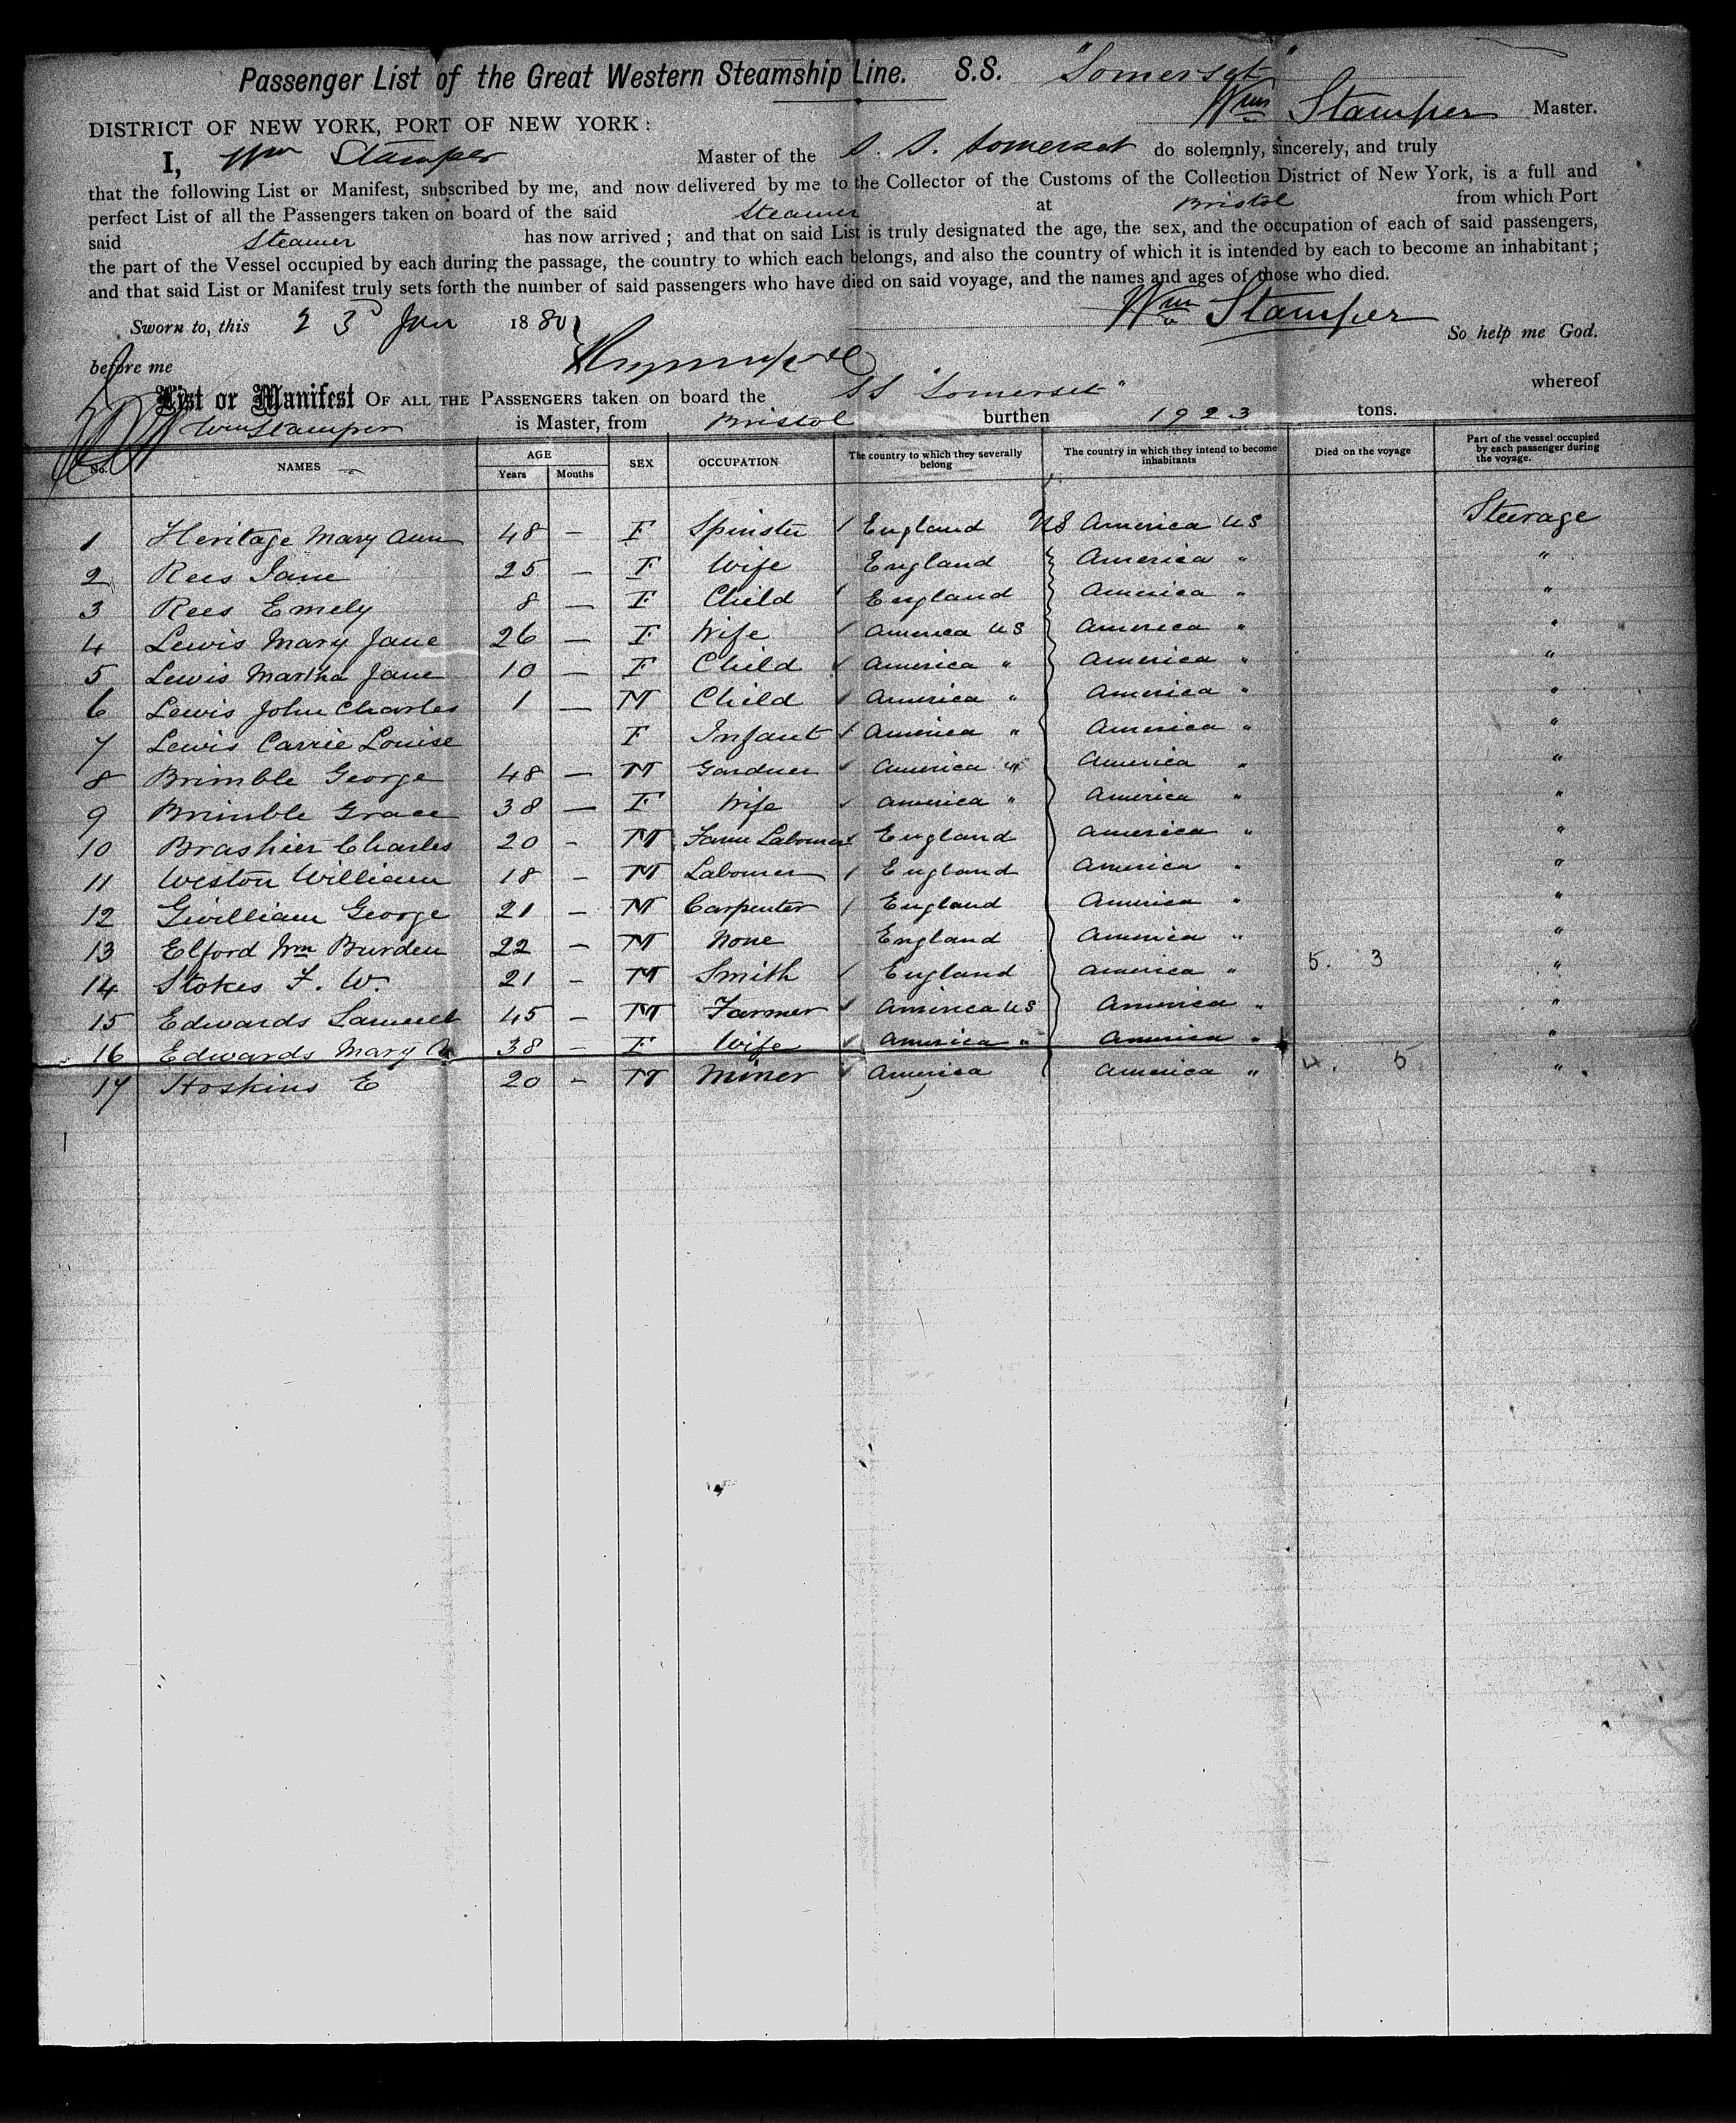 Passenger List of the Great Western Steamship Line. S.S. "Somerset"
Wm Stamper Master.
DISTRICT OF NEW YORK, PORT OF NEW YORK:
I, Wm Stamper Master of the S. S. Somerset do solemnly, sincerely, and truly
that the following List or Manifest, subscribed by me, and now delivered by me to the Collector of the Customs of the Collection District of New York, is a full and
perfect List of all the Passengers taken on board of the said Steamer at Bristol from which Port
said Steamer has now arrived; and that on said List is truly designated the age, the sex, and the occupation of each of said passengers,
the part of the Vessel occupied by each during the passage, the country to which each belongs, and also the country of which it is intended by each to become an inhabitant;
and that said List or Manifest truly sets forth the number of said passengers who have died on said voyage, and the names and ages of those who died.
Sworn to, this 23 Jan 1880 Wm Stamper So help me God.
before me
List or Manifest OF ALL THE PASSENGERS taken on board the SS "Somerset" whereof
Wm Stamper is Master, from Bristol burthen 1923 tons.
No. NAMES AGE Years Months SEX OCCUPATION The country to which they severally belong The country in which they intend to become inhabitants Died on the voyage Part of the vessel occupied by each passenger during the voyage.
1 Heritage Mary Ann 48 — F Spinster England US America US Steerage
2 Rees Jane 25 — F Wife England America " "
3 Rees Emely 8 — F Child England America " "
4 Lewis Mary Jane 26 — F Wife America US America " "
5 Lewis Martha Jane 10 — F Child America " America " "
6 Lewis John Charles 1 — M Child America " America " "
7 Lewis Carrie Louise F Infant America " America " "
8 Brimble George 48 — M Gardner America " America " "
9 Brimble Grace 38 — F Wife America " America " "
10 Brashier Charles 20 - M Farm Labourer England America " "
11 Weston William 18 - M Labourer England America " "
12 Gwilliam George 21 - M Carpenter England America " "
13 Elford Wm Burden 22 - M None England America " "
14 Stokes F. W. 21 - M Smith England America " 5. 3 "
15 Edwards Samuel 45 - M Farmer America US America " "
16 Edwards Mary A 38 - F Wife America " America " "
17 Hoskins E 20 - M Miner America America " 4. 5. "